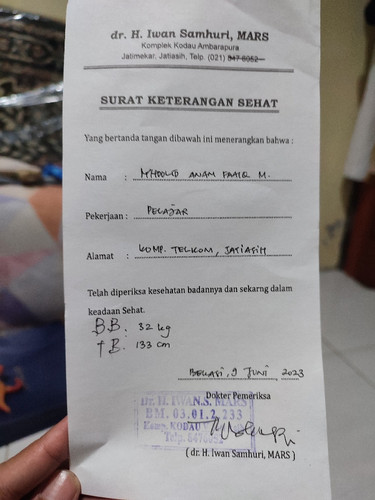 dr. H. Iwan Samhuri, MARS
Komplek Kodau Ambarapura
Jatimekar, Jatiasih, Telp. (021) 847 6952
SURAT KETERANGAN SEHAT
Yang bertanda tangan dibawah ini menerangkan bahwa :
Nama : ANAM FAAIQ M.
Pekerjaan : PELAJAR
Alamat : KOMP. TELKOM, JATIASIH
Telah diperiksa kesehatan badannya dan sekarng dalam
keadaan Sehat.
BB. 32 kg
TB. 133 cm
BEKASI, 9 JUNI, 2023
Dokter Pemeriksa
Dr. H. IWAN.S. MARS
BM. 03.01.2.233
Komp. KODAU
Telp.
( dr. H. Iwan Samhuri, MARS )